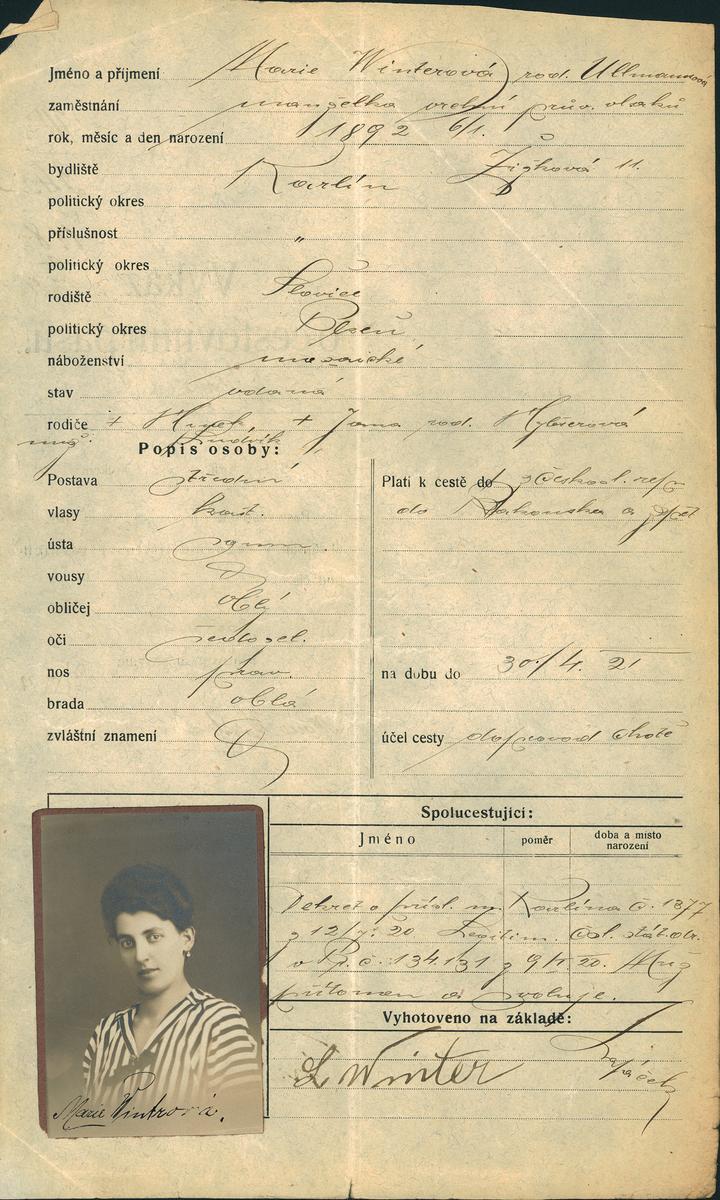 Jméno a příjmení Marie Winterová rod. Ullmannová
zaměstnání manželka vrchní prův. vlaků
rok, měsíc a den narození 1892 6/1.
bydliště Karlín Žižkova 11.
politický okres
příslušnost "
politický okres
rodiště Šlovice
politický okres Plzeň
náboženství mosaické
stav vdaná
rodiče + Hynek, + Jana rod.
muž: Ludvík
Popis osoby:
Postava střední
vlasy kašt.
ústa
vousy
obličej oblý
oči
nos prav.
brada oblá
zvláštní znamení
Platí k cestě do z Českosl. rep.
do Rakouska a zpět
na dobu do 30./4. 21
účel cesty doprovod chotě
Spolucestující:
Jméno
poměr
doba a místo
narození
Dekret o přísl. m. Karlína č. 1377
z 12/7. 20 Legitim. čsl. stát. dr.
v Pr. č. 134.131 z 9/II. 20. Muž
přítomen a svoluje.
Vyhotoveno na základě:
L Winter
Marie Wintrová.